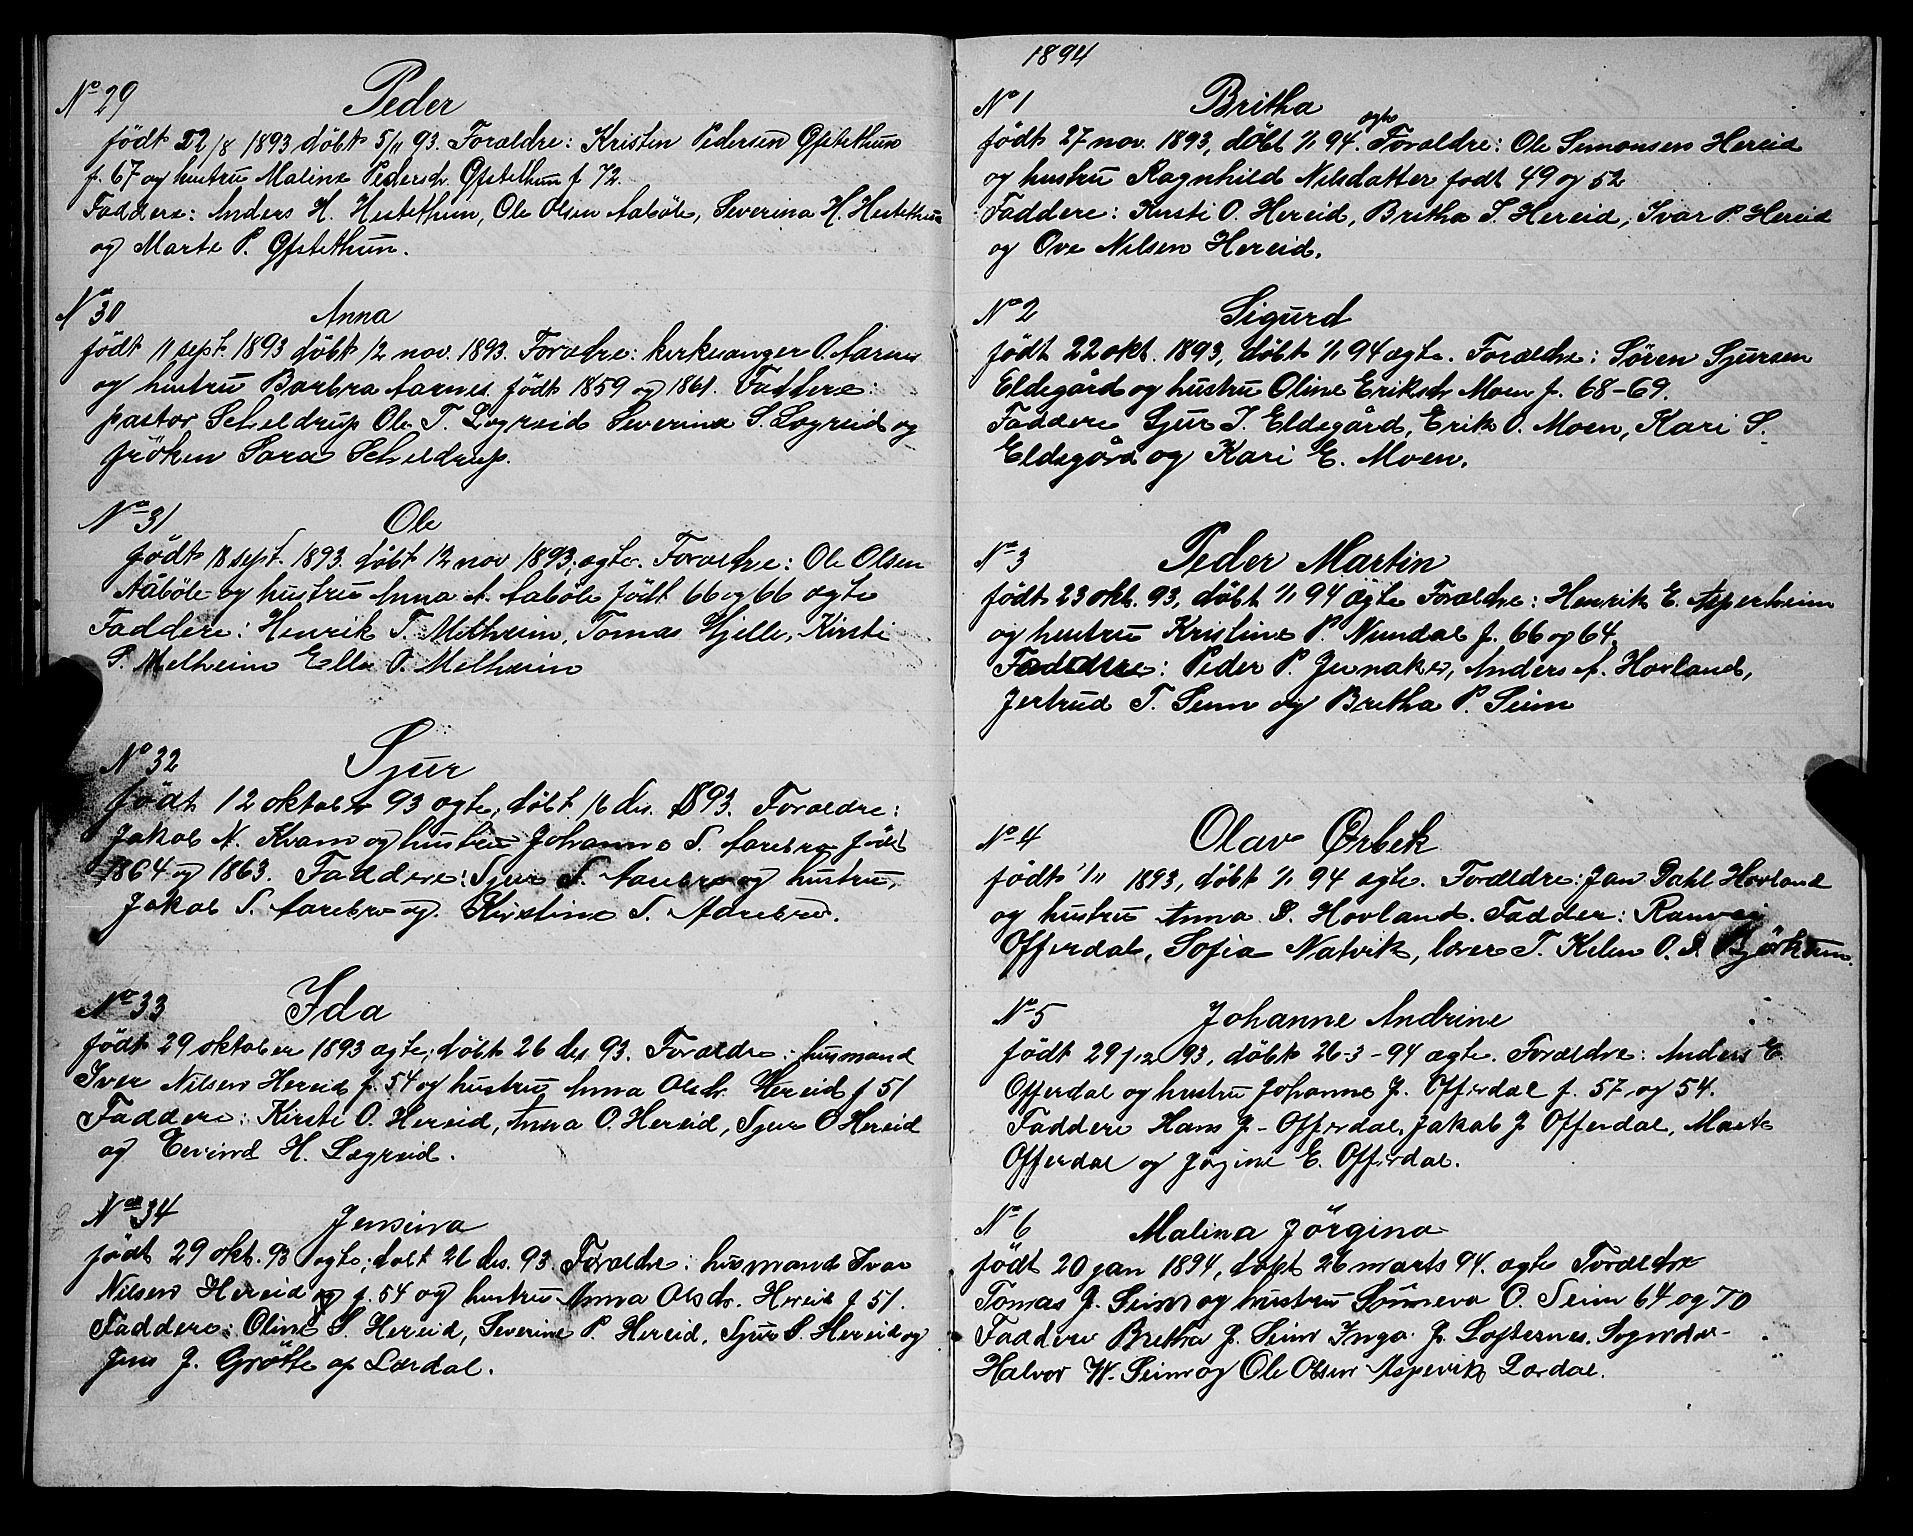 No 29 Peder
født 22/8 1893 døbt 5/11 93. Forældre: Kristen Pedersen Ofstethun
f. 67 og hustru Malina Pedersdr. Ofstethun f 72.
Faddere: Anders H. Hestethun, Ole Olsen Aabøle, Severina H. Hestethun
og Marte P. Ofstethun.
No 30 Anna
født 11 sept. 1893 døbt 12 nov. 1893. Forældre: kirkesanger O. Aarnes
og hustru Barbra Aarnes født 1859 og 1861. Faddere:
pastor Scheldrup Ole T. Lægreid Severina S. Lægreid og
frøken Sara Scheldrup.
No 31 Ole
født 18 sept. 1893. døbt 12 nov 1893, ægte. Forældre: Ole Olsen
Aabøle og hustru Anna A. Aabøle født 66 og 66 ægte
Faddere: Henrik T. Melheim, Tomas Hjelle, Kirsti
P. Melheim Ella O. Melheim
No 32 Sjur
født 12 oktober 93 ægte, døbt 16 des. 1893. Forældre:
Jakob N. Kvam og hustru Johanne S. Aarebro født
1864 og 1863. Faddere: Sjur S. Aarebro og hustru,
Jakob S. Aarebro og Kirstine S. Aarebro.
No 33 Ida
født 29 oktober 1893 ægte; døbt 26 des 93. Forældre: husmand
Iver Nilsen Hereid f. 54 og hustru Anna Olsdr. Hereid f 51
Faddere: Kirsti O. Hereid, Anna O. Hereid, Sjur O Hereid
og Eivind H. Lægreid.
No 34 Jensina
født 29 okt. 93 ægte; døbt 26 des. 93. Forældre: husmand Ivar
Nilsen Hereid og f. 54 og hustru Anna Olsdr. Hereid f 51.
Faddere: Oline S. Hereid, Severine P. Hereid, Sjur S. Hereid og
Jens J. Grøtte af Lærdal.
1894
No 1 Britha
ægte
født 27 nov. 1893, døbt 1/1 94. Forældre: Ole Simonsen Hereid
og hustru Ragnhild Nilsdatter født 49 og 52
Faddere: Kirsti O. Hereid, Britha S. Hereid, Ivar P. Hereid
og Ove Nilsen Hereid.
No 2 Sigurd
født 22 okt. 1893, døbt 1/1 94 ægte. Forældre: Søren Sjursen
Eldegård og hustru Oline Eriksdr Moen f. 68-69.
Faddere Sjur I. Eldegård, Erik O. Moen, Kari S.
Eldegård og Kari E. Moen.
No 3 Peder Martin
født 23 okt. 93, døbt 1/1 94 ægte Forældre: Henrik E. Asperheim
og hustru Kristine P. Nundal f. 66 og 64.
Faddere: Peder P. Anders A. Hovland,
Jertrud T. Seim og Britha P. Seim
No 4 Olav Ørbek
født 1/11 1893, døbt 1/1 94 ægte. Forældre: Jan Dahl Hovland
og hustru Anna S. Hovland. Fadder: Ranvei
Offerdal, Sofia Natvik, lærer T. Kelen O. S. Bjørkum.
No 5 Johanne Andrine
født 29/12 93, døbt 26-3-94 ægte. Forældre: Anders E.
Offerdal og hustru Johanne J. Offerdal f. 57 og 54.
Faddere Hans J. Offerdal, Jakob J Offerdal, Marte
Offerdal og Jørgine E. Offerdal.
No 6 Malina Jörgina
født 20 jan 1894, døpt 26 marts 94. ægte Forældre
Tomas J. Seim og hustru Sünneva O. Seim 64 og 70
Faddere Britha J. Seim Inga J. Loftesnes, Sogndal
Halvor W. Seim og Ole Olsen Aspevik Lærdal.